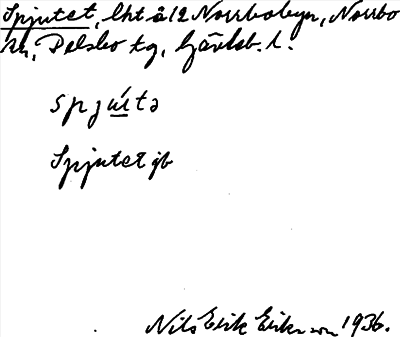 Spjutet, lht å 12 Norrbobyn, Norrbo
sn, Delsbo tg, Gävleb. l.
spjú̲tə
Spjutet jb
Nils Erik Eriksson 1936.